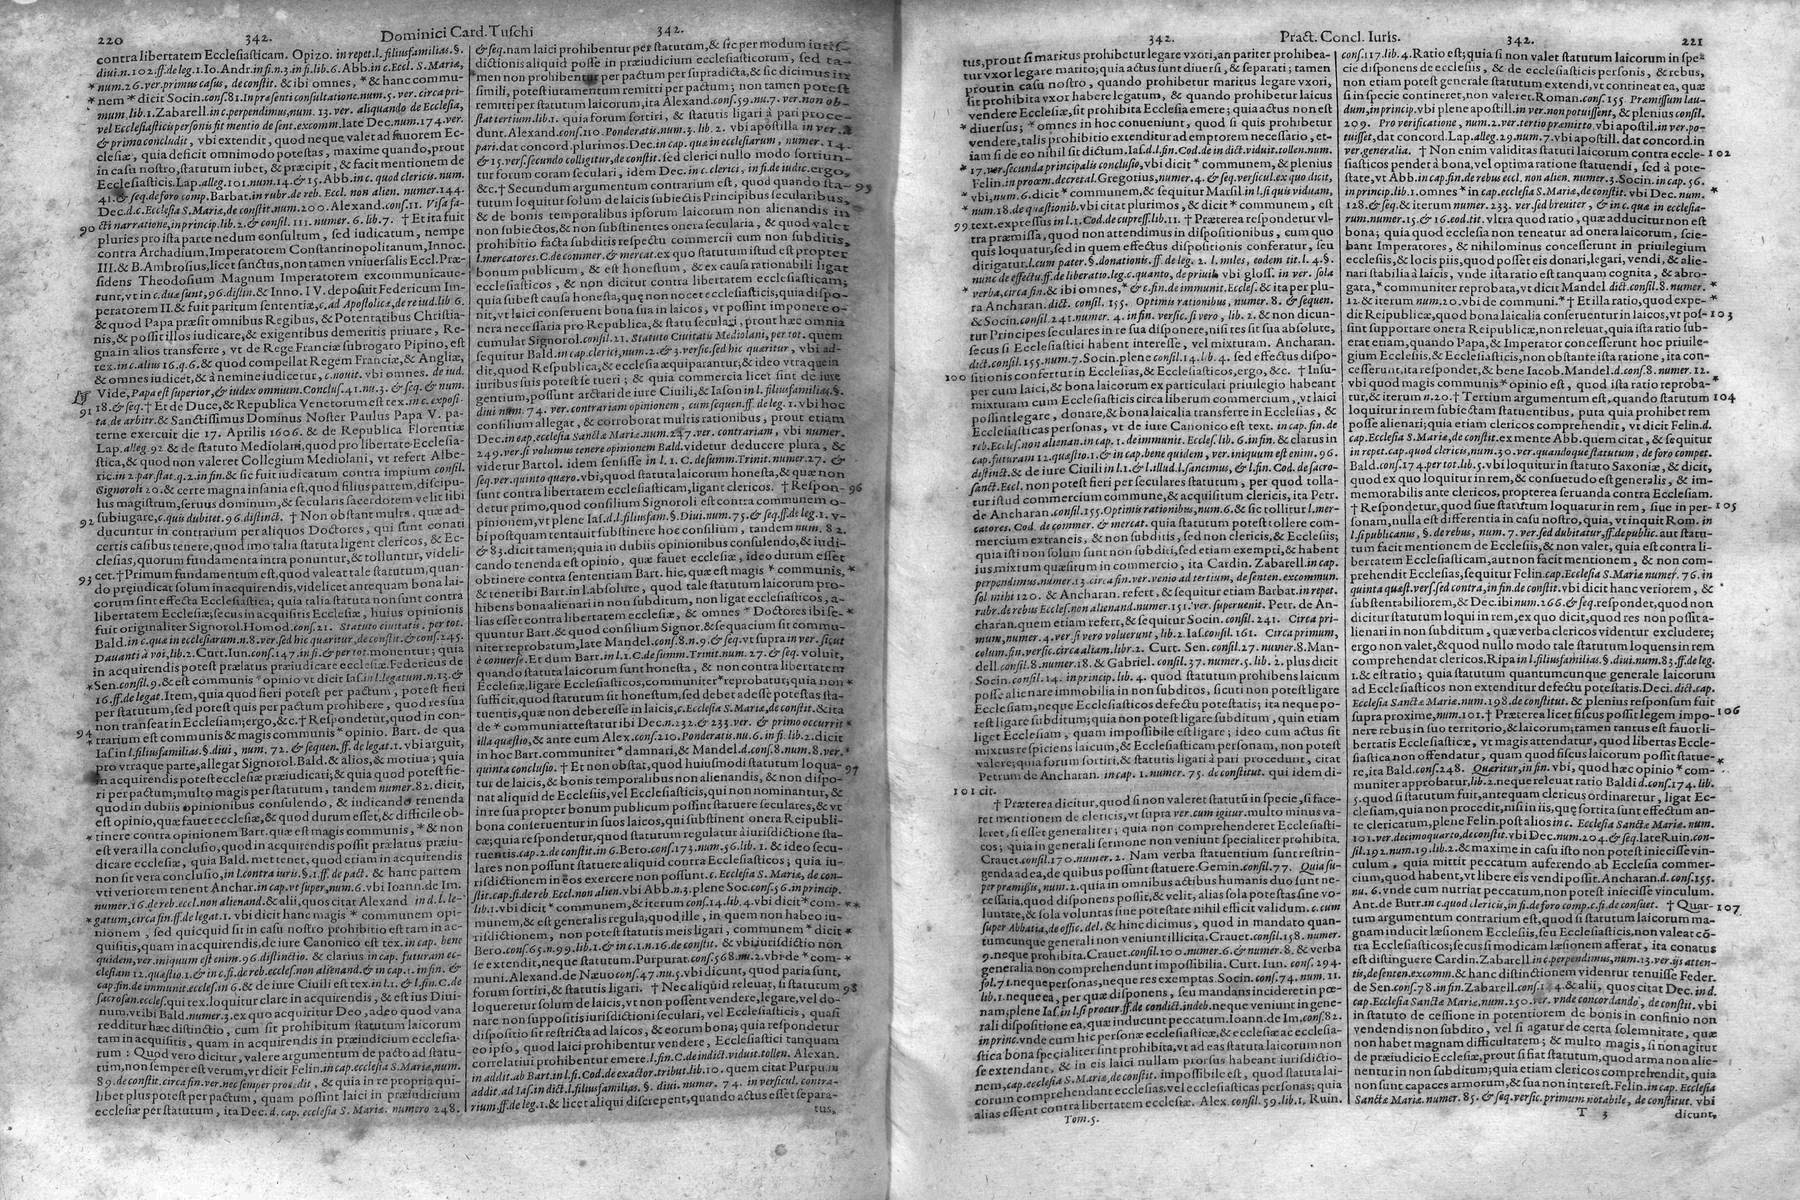 220 342. Dominici Card. Tuschi 342.
contra libertatem Ecclesiasticam. Opizo. in repet. l. filiusfamilias. §.
diui. n. 102. ff. de leg. 1. Io. Andr. in fi. n. 3. in fi. lib. 6. Abb. in c. Eccl. S. Mariæ,
* num. 26. ver. primus casus, de constit. & ibi omnes, * & hanc commu-
* nem * dicit Socin. cons. 81. In præsenti consultatione. num. 5. ver. circa pri-
mum. lib. 1. Zabarell. in c. perpendimus, num. 13. ver. aliquando de Ecclesia,
vel Ecclesiasticis personis fit mentio de sent. excomm. late Decan. num. 174. ver.
& primo concludit, vbi extendit, quod neque valet ad fauorem Ec-
clesiæ, quia deficit omnimodo potestas, maxime quando, prout
in casu nostro, statutum iubet, & præcipit, & facit mentionem de
Ecclesiasticis. Lap. alleg. 101. num. 14. & 15. Abb. in c. quod clericis. num.
41. & seq. de foro comp. Barbat. in rubr. de reb. Eccl. non alien. numer. 144.
Dec. d. c. Ecclesia S. Mariæ, de constit. num. 200. Alexand. cons. 11. Visa fa-
90 cti narratione, in princip. lib. 2. & consil. 111. numer. 6. lib. 7. † Et ita fuit
pluries pro ista parte nedum consultum, sed iudicatum, nempe
contra Archadium, Imperatorem Constantinopolitanum, Innoc.
III. & B. Ambrosius, licet sanctus, non tamen vniuersalis Eccl. Præ-
sidens Theodosium Magnum Imperatorem excommunicauc-
runt, vt in c. duæ sunt, 96. distin. & Inno. IV. deposuit Federicum Im-
peratorem II. & fuit paritum sententiæ, c. ad Apostolicæ, de re iud. lib 6.
& quod Papa præsit omnibus Regibus, & Potentatibus Christia-
nis, & possit illos iudicare, & exigentibus demeritis priuare, Re-
gna in alios transferre, vt de Rege Franciæ subrogato Pipino, est
tex. in c. alius 16. q. 6. & quod compellat Regem Franciæ, & Angliæ,
& omnes iudicet, & à nemine iudicetur, c. nouit. vbi omnes. de iud.
Vide, Papa est superior, & iudex omnium. Conclus. 41. nu. 3. & seq. & num.
91 18. & seq. † Et de Duce, & Republica Venetorum est tex. in c. exposi-
ta, de arbitr. & Sanctissimus Dominus Noster Paulus Papa V. pa-
terne exercuit die 17. Aprilis 1606. & de Republica Florentiæ
Lap. alleg. 92 & de statuto Mediolani, quod pro libertate Ecclesia-
stica, & quod non valeret Collegium Mediolani, vt refert Albe-
ric. in 2. par. stat. q. 2. in fin. & sic fuit iudicatum contra impium consil.
Signoroli 20. & certe magna insania est, quod filius pattem, discipu-
lus magistrum, seruus dominum, & secularis sacerdotem velit sibi
92 subiugare, c. quis dubitet. 96. distinct. † Non obstant multa, quæ ad-
ducuntur in contrarium per aliquos Doctores, qui sunt conati
certis casibus tenere, quod imo talia statuta ligent clericos, & Ec-
clesias, quorum fundamenta intra ponuntur, & tolluntur, videli-
93 cet. † Primum fundamentum est, quod valeat tale statutum, quan-
do præiudicat solum in acquirendis, videlicet antequam bona lai-
corum sint effecta Ecclesiastica; quia talia statuta non sunt contra
libertatem Ecclesiæ, secus in acquisitis Ecclesiæ, huius opinionis
fuit originaliter Signorol. Homod. cons. 21. Statuto ciuitatis. per tot.
Bald. in c. quæ in ecclesiarum. n. 8. ver. sed hic quæritur, de constit. & cons. 245.
Dauanti à voi, lib. 2. Curt. Iun. cons. 147. in fi. & per tot. monentur; quia
in acquirendis potest prælatus præiudicare ecclesiæ. Federicus de
* Sen. consil. 9. & est communis * opinio vt dicit Ias. in l. legatum. n. 13. &
16. ff. de legat. Item, quia quod fieri potest per pactum, potest fieri
per statutum, sed potest quis per pactum prohibere, quod res sua
non transeat in Ecclesiam; ergo, &c. † Respondetur, quod in con-
94 * trarium est communis & magis communis * opinio. Bart. de qua
Ias. in l. filiusfamilias. §. diui, num. 72. & sequen. ff. de legat. 1. vbi arguit,
pro vtraque parte, allegat Signorol. Bald. & alios, & motiua; quia
in acquirendis potest ecclesiæ præiudicari; & quia quod potest fie-
ri per pactum; multo magis per statutum, tandem numer. 82. dicit,
quod in dubiis opinionibus consulendo, & iudicando tenenda
est opinio, quæ fauet ecclesiæ, & quod durum esset, & difficile ob-
* tinere contra opinionem Bart. quæ est magis communis, * & non
est vera illa conclusio, quod in acquirendis possit prælatus præiu-
dicare ecclesiæ, quia Bald. met tenet, quod etiam in acquirendis
non sit vera conclusio, in l. contra iuris. §. 1. ff. de pact. & hanc partem
vti veriorem tenent Anchar. in cap. vt super, num. 6. vbi Ioann. de Im.
numer. 16. de reb. eccl. non alienand. & alii, quos citat Alexand. in d. l. le-
* gatum, circa fin. ff. de legat. 1. vbi dicit hanc magis * communem opi-
nionem, sed quicquid sit in casu nostro prohibitio est tam in ac-
quisitis, quam in acquirendis, de iure Canonico est tex. in cap. bene
quidem, ver. iniquum est enim. 96. distinctio. & clarius in cap. futuram ec-
clesiam 12. quæstio. 1. & in c. fi. de reb. eccles. non alienand. & in cap. 1. in fin. &
cap. fin. de immunit. eccles. in 6. & de iure Ciuili est tex. in l. 1. & l. fin. C. de
sacrosan. eccles. qui tex. loquitur clare in acquirendis, & est ius Diui-
num, vt ibi Bald. numer. 3. ex quo acquiritur Deo, adeo quod vana
redditur hæc distinctio, cum sit prohibitum statutum laicorum
tam in acquisitis, quam in acquirendis in præiudicium ecclesia-
rum: Quod vero dicitur, valere argumentum de pacto ad statu-
tum, non semper est verum, vt dicit Felin. in cap. ecclesia S. Mariæ, num.
89. de constit. circa fin. ver. nec semper procedit, & quia in re propria qui-
libet plus potest per pactum, quam possint laici in præiudicium
ecclesiæ per statutum, ita Dec. d. cap. ecclesia S. Mariæ. numero 248.
& seq. nam laici prohibentur per statutum, & sic per modum iuris-
dictionis aliquid posse in præiudicium ecclesiarum, sed ta-
men non prohibentur per pactum per supradicta, & sic dicimus in
simili, potest iutamentum remitti per pactum; non tamen potest
remitti per statutum laicorum, ita Alexand. cons. 59. nu. 7. ver. non ob-
stat tertium. lib. 1. quia forum sortiri, & statutis ligari à pari proce-
dunt. Alexand. cons. 110. Ponderatis. num. 3. lib. 2. vbi apostilla in ver. a
pari. dat concord. plurimos. Dec. in cap. quæ in ecclesiarum, numer. 14.
& 15. vers. secundo colligitur, de constit. sed clerici nullo modo sortiun-
tur forum coram seculari, idem Dec. in c. clerici, in fi. de iudic. ergo,
&c. † Secundum argumentum contrarium est, quod quando sta- 95
tutum loquitur solum de laicis subiectis Principibus secularibus,
& de bonis temporalibus ipsorum laicorum non alienandis in
non subiectos, & non substinentes onera secularia, & quod valet
prohibitio facta subditis respectu commercii cum non subditis,
l. mercatores. C. de commer. & mercat. ex quo statutum istud est propter
bonum publicum, & est honestum, & ex causa rationabili ligat
ecclesiasticos, & non dicitur contra libertatem ecclesiasticam;
quia subest causa honesta, quæ non nocet ecclesiasticis, quia dispo-
nit, vt laici conseruent bona sua in laicos, vt possint imponere o-
nera necessaria pro Republica, & statu seculari, pront hæc omnia
cumulat Signorol. consil. 21. Statuto Ciuitatis Mediolani, per tot. quem
sequitur Bald. in cap. clerici, num. 2. & 3. versic. sed hic quæritur, vbi ad-
dit, quod Respublica, & ecclesia æquiparantur; & ideo vtraque in
iuribus suis potest se tueri; & quia commercia licet sint de iure
gentium, possunt arctari de iure Ciuili, & Iason in l. filiusfamilias. §.
diui num. 74. ver. contrariam opinionem, cum sequen. ff. de leg. 1. vbi hoc
consilium allegat, & corroborat multis rationibus, prout etiam
Dec. in cap. ecclesia Sanctæ Mariæ. num. 247. ver. contrariam, vbi numer.
249. ver. si volumus tenere opinionem Bald. videtur deducere plura, &
videtur Bartol. idem sensisse in l. 1. C. de summ. Trinit. numer. 27. &
seq. ver. quinto quæro. vbi, quod statuta laicorum honesta, & quæ non
sunt contra libertatem ecclesiasticam, ligant clericos. † Respon- 96
detur primo, quod consilium Signoroli est contra communem o-
pinionem, vt plene Ias. d. l. filiusfam. §. Diui. num. 75. & seq. ff. de leg. 1. v-
bi postquam tentauit substinere hoc consilium, tandem num. 82.
& 83. dicit tamen; quia in dubiis opinionibus consulendo, & iudi-
cando tenenda est opinio, quæ fauet ecclesiæ, ideo durum esset
obtinere contra sententiam Bart. hic, quæ est magis * communis, *
& tenet ibi Bart. in l. absolute, quod tale statutum laicorum pro-
hibens bona alienari in non subditum, non ligat ecclesiasticos, a-
lias esset contra libertatem ecclesiæ, & omnes * Doctores ibi se- *
quuntur Bart. & quod consilium Signor. & sequacium sit commu-
niter reprobatum, late Mandel. cons. 8. n. 9. & seq. vt supra in ver. sicut
è conuerso. Et dum Bart. in l. 1. C. de summ. Trinit. num. 27. & seq. voluit,
quando statuta laicorum sunt honesta, & non contra libertatem
Ecclesiæ, ligare Ecclesiasticos, communiter * reprobatur; quia non *
sufficit, quod statutum sit honestum, sed debet adesse potestas sta-
tuentis, quæ non debet esse in laicis, c. Ecclesia S. Mariæ, de constit. & ita
de * communi attestatur ibi Dec. n. 232. & 233. ver. & primo occurrit *
illa quæstio, & ante eum Alex. cons. 210. Ponderatis. nu. 6. in fi. lib. 2. dicit
in hoc Bart. communiter * damnari, & Mandel. d. cons. 8. num. 8. ver. *
quinta conclusio. † Et non obstat, quod huiusmodi statutum loqua- 97
tur de laicis, & bonis temporalibus non alienandis, & non dispo-
nat aliquid de Ecclesiis, vel Ecclesiasticis, qui non nominantur, &
in re sua propter bonum publicum possint statuere seculares, & vt
bona conseruentur in suos laicos, qui substinent onera Reipubli-
cæ; quia respondetur, quod statutum regulatur à iurisdictione sta-
tuentis. cap. 2. de constit. in 6. Bero. cons. 173. num. 56. lib. 1. & ideo secu-
lares non possunt statuere aliquid contra Ecclesiasticos; quia iu-
risdictionem in eos exercere non possunt. c. Ecclesia S. Mariæ, de con-
stit. cap. fi. de reb. Eccl. non alien. vbi Abb. n. 3. plene Soc. cons. 56. in princip.
lib. 1. vbi dicit * communem, & iterum cons. 14. lib. 4. vbi dicit * com- **
munem, & est generalis regula, quod ille, in quem non habeo iu-
risdictionem, non potest statutis meis ligari, communem * dicit *
Bero. cons. 65. n. 99. lib. 1. & in c. 1. n. 16. de constit. & vbi iurisdictio non
se extendit, neque statutum. Purpurat. cons. 568. nu. 2. vbi de * com- *
muni. Alexand. de Næuo cons. 47. nu. 5. vbi dicunt, quod paria sunt,
forum sortiri, & statutis ligari. † Nec aliquid releuat, si statutum 98
loqueretur solum de laicis, vt non possent vendere, legare, vel do-
nare non suppositis iurisdictioni seculari, vel Ecclesiasticis, quasi
dispositio sit restricta ad laicos, & eorum bona; quia respondetur
eo ipso, quod laici prohibentur vendere, Ecclesiastici tanquam
correlatiui prohibentur emere. l. fin. C. de indict. viduit. tollen. Alexan.
in addit. ab Bart. in l. fi. Cod. de exactor. tribut. lib. 10. quem citat Purpu. in
addit. ad Ias. in dict. l. filiusfamilias. §. diui. numer. 74. in versicul. contra-
rium. ff. de leg. 1. & licet aliqui discrepent, quando actus esset separa-
tus,
342. Pract. Concl. Iuris. 342. 221
tus, prout si maritus prohibetur legare vxori, an pariter prohibea-
tur vxor legare marito; quia actus sunt diuersi, & separati; tamen
prout in casu nostro, quando prohibetur maritus legare vxori,
sit prohibita vxor habere legatum, & quando prohibetur laicus
vendere Ecclesiæ, sit prohibita Ecclesia emere; quia actus non est
* diuersus; * omnes in hoc conueniunt, quod si quis prohibetur
vendere, talis prohibitio extenditur ad emptorem necessario, et-
iam si de eo nihil sit dictum. Ias. d. l. fin. Cod. de indict. viduit. tollen. num.
* 17. ver. secunda principalis conclusio, vbi dicit * communem, & plenius
Felin. in proœm. decretal. Gregorius, numer. 4. & seq. versicul. ex quo dicit,
* vbi, num. 6. dicit * communem, & sequitur Marsil. in l. si quis viduam,
* num. 18. de quæstionib. vbi citat plurimos, & dicit * communem, & est
99 text. expressus in l. 1. Cod. de cupress. lib. 11. † Præterea respondetur vl-
tra præmissa, quod non attendimus in dispositionibus, cum quo
quis loquatur, sed in quem effectus dispositionis conferatur, seu
dirigatur. l. cum pater. §. donationis. ff. de leg. 2. l. miles, eodem tit. l. 4. §.
nunc de effectu. ff. de liberatio. leg. c. quanto, de priuil. vbi gloss. in ver. sola
* verba, circa fin. & ibi omnes, * & c. fin. de immunit. Eccles. & ita per plu-
ra Ancharan. dict. consil. 155. Optimis rationibus, numer. 8. & sequen.
& Socin. consil. 241. numer. 4. in fin. versic. si vero, lib. 2. & non dicun-
tur Principes seculares in re sua disponere, nisi res sit sua absolute,
secus si Ecclesiastici habent interesse, vel mixturam. Ancharan.
dict. consil. 155. num. 7. Socin. plene consil. 14. lib. 4. sed effectus dispo-
100 sitionis confertur in Ecclesias, & Ecclesiasticos, ergo, &c. † Insu-
per cum laici, & bona laicorum ex particulari priuilegio habeant
mixturam cum Ecclesiasticis circa liberum commercium, vt laici
possint legare, donare, & bona laicalia transferre in Ecclesias, &
Ecclesiasticas personas, vt de iure Canonico est text. in cap. fin. de
reb. Eccles. non alienan. in cap. 1. de immunit. Eccles. lib. 6. in fin. & clarus in
cap. futuram 12. quæstio. 1. & in cap. bene quidem, ver. iniquum est enim. 96.
destinct. & de iure Ciuili in l. 1. & l. illud. l. sancimus, & l. fin. Cod. de sacro-
sanct. Eccl. non potest fieri per seculares statutum, per quod tolla-
tur istud commercium commune, & acquisitum clericis, ita Petr.
de Ancharan. consil. 155. Optimis rationibus, num. 6. & sic tollitur l. mer-
catores. Cod. de commer. & mercat. quia statutum potest tollere com-
mercium extraneis, & non subditis, sed non clericis, & Ecclesiis;
quia isti non solum sunt non subditi, sed etiam exempti, & habent
ius mixtum quæsitum in commercio, ita Cardin. Zabarell. in cap.
perpendimus. numer. 13. circa fin. ver. venio ad tertium, de senten. excommun.
sol mihi 120. & Ancharan. refert, & sequitur etiam Barbat. in repet.
rubr. de rebus Eccles. non alienand. numer. 151. ver. superuenit. Petr. de An-
charan. quem etiam refert, & sequitur Socin. consil. 241. Circa pri-
mum, numer. 4. ver. si vero voluerunt, lib. 2. Ias. consil. 161. Circa primum,
colum. fin. versic. circa aliam. libr. 2. Curt. Sen. consil. 27. numer. 8. Man-
dell. consil. 8. numer. 18. & Gabriel. consil. 37. numer. 5. lib. 2. plus dicit
Socin. consil. 14. in princip. lib. 4. quod statutum prohibens laicum
posse alienare immobilia in non subditos, sicuti non potest ligare
Ecclesiam, neque Ecclesiasticos defectu potestatis; ita neque po-
test ligare subditum; quia non potest ligare subditum, quin etiam
liget Ecclesiam, quam impossibile est ligare; ideo cum actus sit
mixtus respiciens laicum, & Ecclesiasticam personam, non potest
valere; quia forum sortiri, & statutis ligari à pari procedunt, citat
Petrum de Ancharan. in cap. 1. numer. 75. de constitut. qui idem di-
101 cit.
† Præterea dicitur, quod si non valeret statutū in specie, si face-
ret mentionem de clericis, vt supra ver. cum igitur. multo minus va-
leret, si esset generaliter; quia non comprehenderet Ecclesiasti-
cos; quia in generali sermone non veniunt specialiter prohibita.
Crauet. consil. 170. numer. 2. Nam verba statuentium sunt restrin-
genda ad ea, de quibus possunt statuere. Gemin. consil. 77. Quia su-
per præmissis, num. 2. quia in omnibus actibus humanis duo sunt ne-
cessaria, quod disponens possit, & velit, alias sola potestas sine vo-
luntate, & sola voluntas sine potestate nihil efficit validum. c. cum
super Abbatia, de offic. del. & hinc dicimus, quod in mandato quan-
tumcunque generali non veniunt illicita. Crauet. consil. 158. numer.
9. neque prohibita. Crauet. consil. 100. numer. 6. & numer. 8. & verba
generalia non comprehendunt impossibilia. Curt. Iun. cons. 294.
fol. 71. neque personas, neque res exemptas. Socin. cons. 74. num. 11.
lib. 1. neque ea, per quæ disponens, seu mandans incideret in pœ-
nam, plene Ias. in l. si procur. ff. de condict. indeb. neque veniunt in gene-
rali dispositione ea, quæ inducunt peccatum. Ioann. de Im. cons. 82.
in princ. vnde cum hic personæ ecclesiasticæ, & ecclesiæ ac ecclesia-
stica bona specialiter sint prohibita, vt ad eas statuta laicorum non
se extendant, & in eis laici nullam prorsus habeant iurisdictio-
nem, cap. ecclesia S. Mariæ, de constit. impossibile est, quod statuta lai-
corum comprehendant ecclesias, vel ecclesiasticas personas; quia
alias essent contra libertatem ecclesiæ. Alex. consil. 59. lib. 1. Ruin.
Tom. 5.
cons. 117. lib. 4. Ratio est; quia si non valet statutum laicorum in spe-
cie disponens de ecclesiis, & de ecclesiasticis personis, & rebus,
non etiam potest generale statutum extendi, vt contineat ea, quæ
si in specie contineret, non valeret. Roman. cons. 155. Præmissum lau-
dum, in princip. vbi plene apostill. in ver. non potuissent, & plenius consil.
209. Pro verificatione, num. 2. ver. tertio præmitto. vbi apostil. in ver. po-
tuisset, dat concord. Lap. alleg. 29. num. 7. vbi apostill. dat concord. in
ver. generalia. † Non enim validitas statuti laicorum contra eccle- 102
siasticos pendet à bona, vel optima ratione statuendi, sed à pote-
state, vt Abb. in cap. fin. de rebus eccl. non alien. numer. 3. Socin. in cap. 56.
in princip. lib. 1. omnes * in cap. ecclesia S. Mariæ, de constit. vbi Dec. num. *
128. & seq. & iterum numer. 233. ver. sed breuiter, & in c. quæ in ecclesia-
rum. numer. 15. & 16. eod. tit. vltra quod ratio, quæ adducitur non est
bona; quia quod ecclesia non teneatur ad onera laicorum, scie-
bant Imperatores, & nihilominus concesserunt in priuilegium
ecclesiis, & locis piis, quod posset eis donari, legari, vendi, & alie-
nari stabilia à laicis, vnde ista ratio est tanquam cognita, & abro-
gata, * communiter reprobata, vt dicit Mandel. dict. consil. 8. numer. *
12. & iterum num. 20. vbi de communi. * † Et illa ratio, quod expe- *
dit Reipublicæ, quod bona laicalia conseruentur in laicos, vt pos- 103
sint supportare onera Reipublicæ, non releuat, quia ista ratio sub-
erat etiam, quando Papa, & Imperator concesserunt hoc priuile-
gium Ecclesiis, & Ecclesiasticis, non obstante ista ratione, ita con-
cesserunt, ita respondet, & bene Iacob. Mandel. d. cons. 8. numer. 12.
vbi quod magis communis * opinio est, quod ista ratio reproba- *
tur, & iterum n. 20. † Tertium argumentum est, quando statutum 104
loquitur in rem subiectam statuentibus, puta quia prohibet rem
posse alienari; quia etiam clericos comprehendit, vt dicit Felin. d.
cap. Ecclesia S. Mariæ, de constit. ex mente Abb. quem citat, & sequitur
in repet. cap. quod clericis, num. 30. ver. quandoque statutum, de foro compet.
Bald. cons. 174. per tot. lib. 5. vbi loquitur in statuto Saxoniæ, & dicit,
quod ex quo loquitur in rem, & consuetudo est generalis, & im-
memorabilis ante clericos, propterea seruanda contra Ecclesiam.
† Respondetur, quod siue statutum loquatur in rem, siue in per- 105
sonam, nulla est differentia in casu nostro, quia, vt inquit Rom. in
l. si publicanus, §. de rebus, num. 7. ver. sed dubitatur, ff. de public. aut statu-
tum facit mentionem de Ecclesiis, & non valet, quia est contra li-
bertatem Ecclesiasticam, aut non facit mentionem, & non com-
prehendit Ecclesias, sequitur Felin. cap. Ecclesia S. Mariæ numer. 76. in
quinta quæst. vers. sed contra, in fin. de constit. vbi dicit hanc veriorem, &
substentabiliorem, & Dec. ibi num. 266. & seq. respondet, quod non
dicitur statutum loqui in rem, ex quo dicit, quod res non possit a-
lienari in non subditum, quæ verba clericos videntur excludere;
ergo non valet, & quod nullo modo tale statutum loquens in rem
comprehendat clericos. Ripa in l. filiusfamilias. §. diui. num. 83. ff. de leg.
1. & est ratio; quia statutum quantumcunque generale laicorum
ad Ecclesiasticos non extenditur defectu potestatis. Deci. dict. cap.
Ecclesia Sanctæ Mariæ. num. 198. de constitut. & plenius responsum fuit
supra proxime, num. 101. † Præterea licet fiscus possit legem impo- 106
nere rebus in suo territorio, & laicorum; tamen tantus est fauor li-
bertatis Ecclesiasticæ, vt magis attendatur, quod libertas Eccle-
siastica non offendatur, quam quod fiscus laicorum possit statue-
re, ita Bald. cons. 248. Quæritur, in fin. vbi, quod hæc opinio * com- *
muniter approbatur. lib. 2. neque releuat ratio Baldi d. cons. 174. lib.
5. quod si statutum fuit, antequam clericus ordinaretur, ligat Ec-
clesiam, quia non procedit, nisi in iis, quæ sortita sunt effectum an-
te clericatum, plene Felin. post alios in c. Ecclesia Sanctæ Mariæ. num.
101. ver. decimoquarto, de constitut. vbi Dec. num. 204. & seq. late Ruin. con-
sil. 192. num. 19. lib. 2. & maxime in casu isto non potest iniecisse vin-
culum, quia mittit peccatum auferendo ab Ecclesia commer-
cium, quod habent, vt libere eis vendi possit. Anchar. d. cons. 155.
nu. 6. vnde cum nutriat peccatum, non potest iniecisse vinculum.
Ant. de Butr. in c. quod clericis, in fi. de foro comp. c. fi. de consuet. † Quar- 107
tum argumentum contrarium est, quod si statutum laicorum ma-
gnam inducit læsionem Ecclesiis, seu Ecclesiasticis, non valeat cō-
tra Ecclesiasticos; secus si modicam læsionem afferat, ita conatus
est distinguere Cardin. Zabarell in c. perpendimus, num. 13. ver. iis atten-
tis, de senten. excomm. & hanc distinctionem videntur tenuisse Feder.
de Sen. cons. 78. in fin. Zabarell. & alii, quos citat Dec. in d.
cap. Ecclesia Sanctæ Mariæ, num. 250. ver. vnde concordando, de constit. vbi
in statuto de cessione in potentiorem de bonis in confinio non
vendendis non subdito, vel si agatur de certa solemnitate, quæ
non habet magnam difficultatem; & multo magis, si non agitur
de præiudicio Ecclesiæ, prout si fiat statutum, quod arma non alie-
nentur in non subditum; quia etiam clericos comprehendit, quia
non sunt capaces armorum, & sua non interest. Felin. in cap. Ecclesia
Sanctæ Mariæ. numer. 85. & seq. versic. primum notabile, de constitut. vbi
T 3 dicunt,